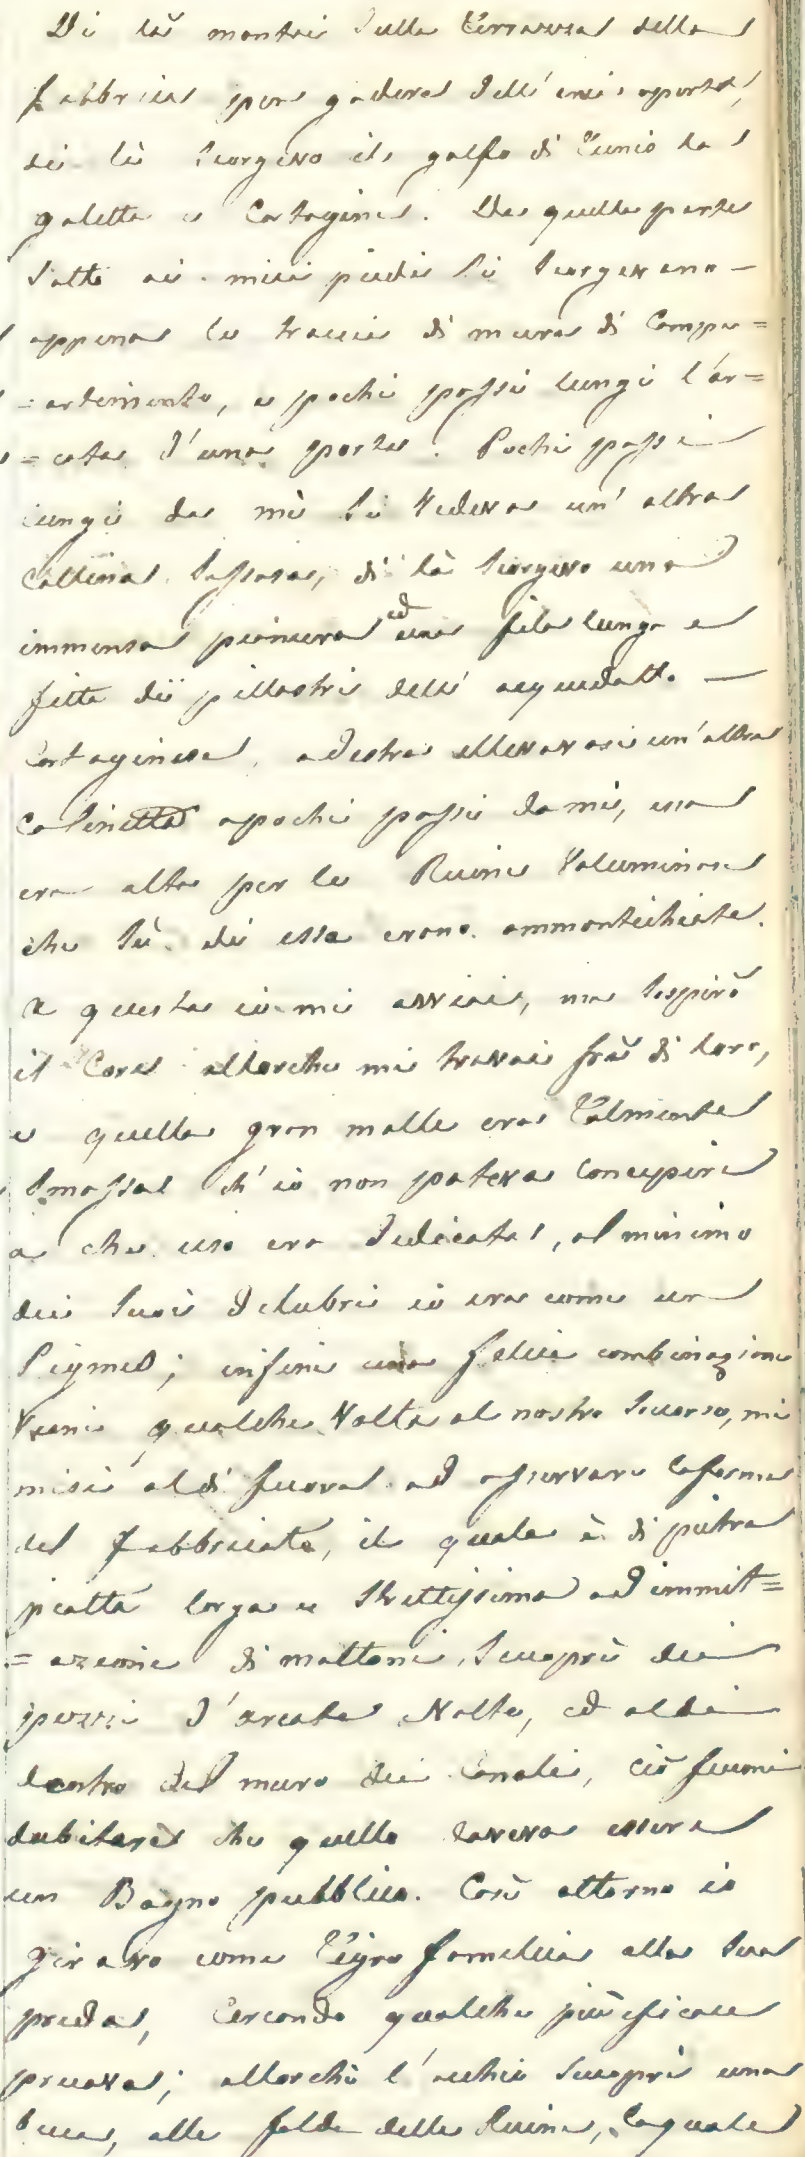 Di là montai sulla Terrazza della
fabbrica per godere dell'aria aperta,
di là scorgevo il golfo di Tunis la
goletta e Cartagine. Da quella parte
sotto ai miei piedi si scorgevano —
appena le traccie di mura di Compa=
=artimento, e pochi passi lungi l'ar=
=cata d'una porta. Pochi passi
lungi da mè si vedeva un'altra
Collina sassosa, di là scorgevo una
immensa pianura ed una fila lunga e
fitta dii pillastri dell'acquedotto —
Cartaginese, adestra ellevavasi un'altra
colinetta apochi passi da mè, essa
era alta per le Ruine Voluminose
che sù di essa erano ammontichiate.
A questa io mi avviai, ma sospirò
il Core allorche mi trovai frà di loro,
e quella gran molle era talmente
smossa ch'io non poteva Concepire
a che uso era dedicata, al minimo
dei suoi delubri io era come un
Pigmeo; infine una felice combinazione
viene qualche volta al nostro soccorso, mi
misi aldi fuora ad osservare laforma
del fabbricato, il quale è di pietra
piatta larga e strettissima ad immit=
=azione di mattoni, scuoprii dei
pezzi d'arcate Volte, ed aldi
dentro del muro dei Canali, ciò feemi
dubitare che quello doveva essere
un Bagno pubblico. Così attorno io
giravo come Tigre famelica alla sua
preda, Cercando qualche più eficace
pruova; allorchè l'occhio scuoprì una
buca, alle falde delle Ruine, laquale